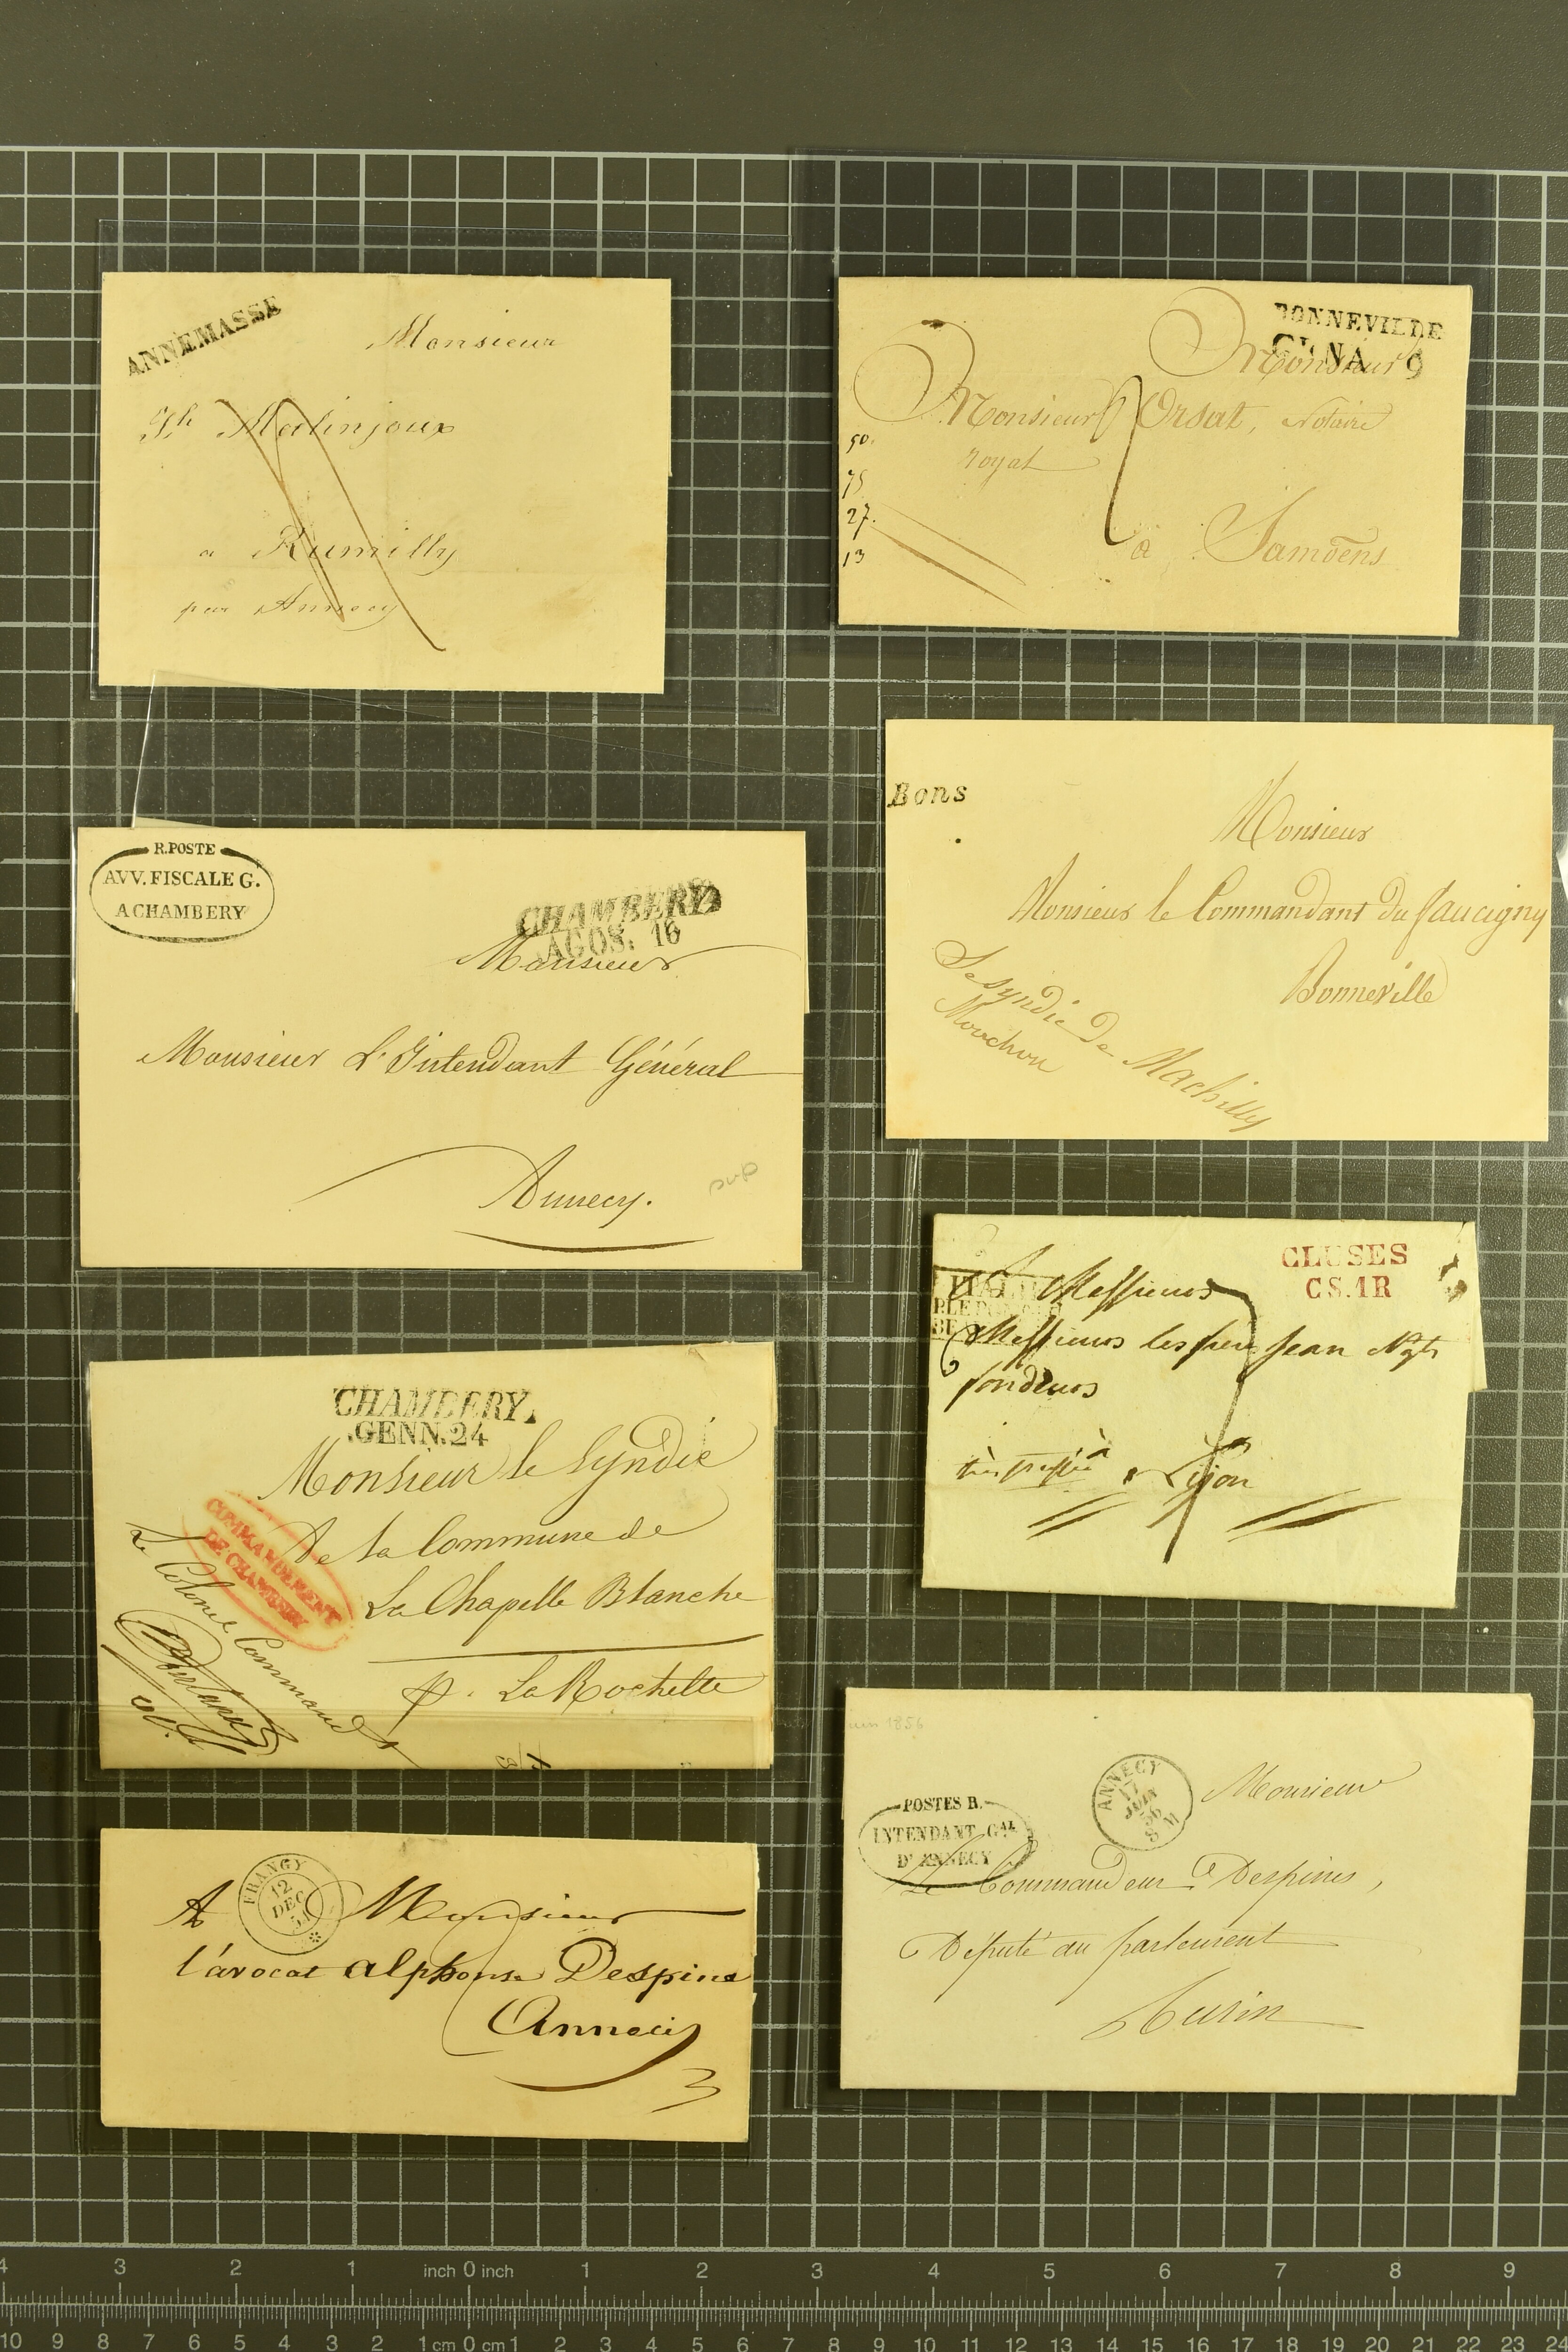 ANNEMASSE
Monsieur
Jh Molinjoux
a Rumilly
par Annecy
BONNEVILLE
GI.NA 9
Monsieur
Monsieur Orsat, Notaire
royal
à Samoëns
50.
75
27.
13
R.POSTE
AVV. FISCALE G.
A CHAMBERY
CHAMBERY
AGOS. 16
Monsieur
Monsieur L'Intendant Général
Annecy.
Bons
Monsieur
Monsieur le Commandant du faucigny
Bonneville
Le syndic de Machilly
Mouchon
CLUSES
CS.1R
Messieurs
Messieurs les freres Jean Ngts
fondeurs
très pressée à
Lyon
CHAMBERY.
.GENN.24
Monsieur le Syndic
de la Commune de
La Chapelle Blanche
p. La Rochette
COMMANDEMENT
DE CHAMBERY
Le Colonel Command
juin 1856
ANNECY
17
JUIN
56
8 M
POSTES R.
INTENDANT GAL
D'ANNECY
Monsieur
Le Commandeur Despines,
Député au parlement
Turin
FRANGY
12
DEC
A Monsieur
l'avocat alphonse Despine
Annecy
3
4 3 2 1 inch 0 inch 1 2 3 4 5 6 7 8 9
10 9 8 7 6 5 4 3 2 1 cm 0 cm 1 2 3 4 5 6 7 8 9 10 11 12 13 14 15 16 17 18 19 20 21 22 23 24